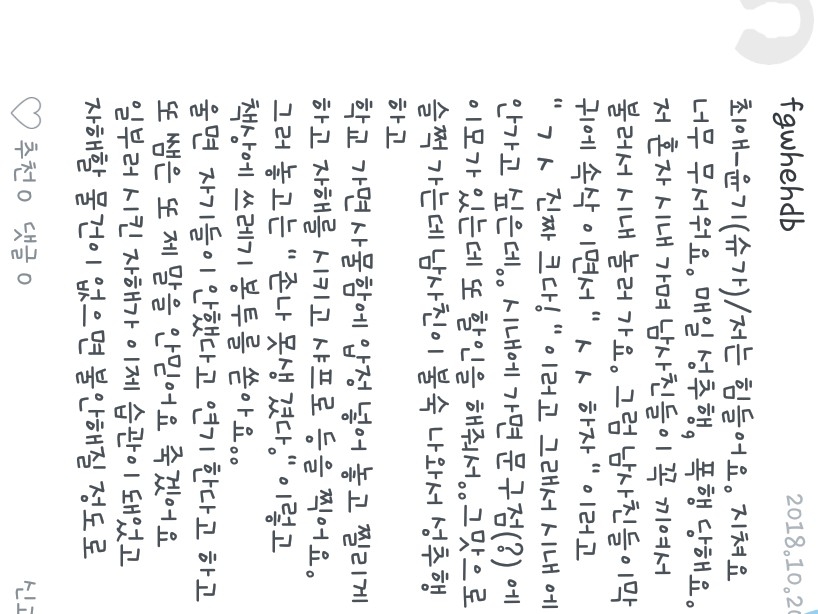 fgwhehdb
2018.10.20
최애-윤기(슈가)/저는 힘들어요. 지쳐요
너무 무서워요. 매일 성추행, 폭행 당해요.
저 혼자 시내 가며 남사친들이 꼭 끼여서
불러서 시내 놀러 가요. 그럼 남사친들이 막
귀에 속삭 이면서 " ㅅ ㅅ 하자" 이러고
" ㄱ ㅅ 진짜 크다!" 이러고 그래서 시내 에
안가고 싶은데.. 시내에 가면 문구점(?) 에
이모가 있는데 또 할인을 해줘서..그맛으로
슬쩍 가는데 남사친이 불쑥 나와서 성추행
하고
학교 가면 사물함에 압정 넣어 놓고 찔리게
하고 자해를 시키고 샤프로 등을 찍어요.
그러 놓고는 " 존나 못생 겼다." 이렇고
책상에 쓰레기 봉투를 쏟아요..
울면 자기들이 안했다고 연기 하다고 하고
또 쌤은 또 제 말을 안믿어요 죽겠어요
일부러 시킨 자해가 이제 습관이 돼었고
자해할 물건이 없으면 불안해질 정도로
추천 0 댓글 0